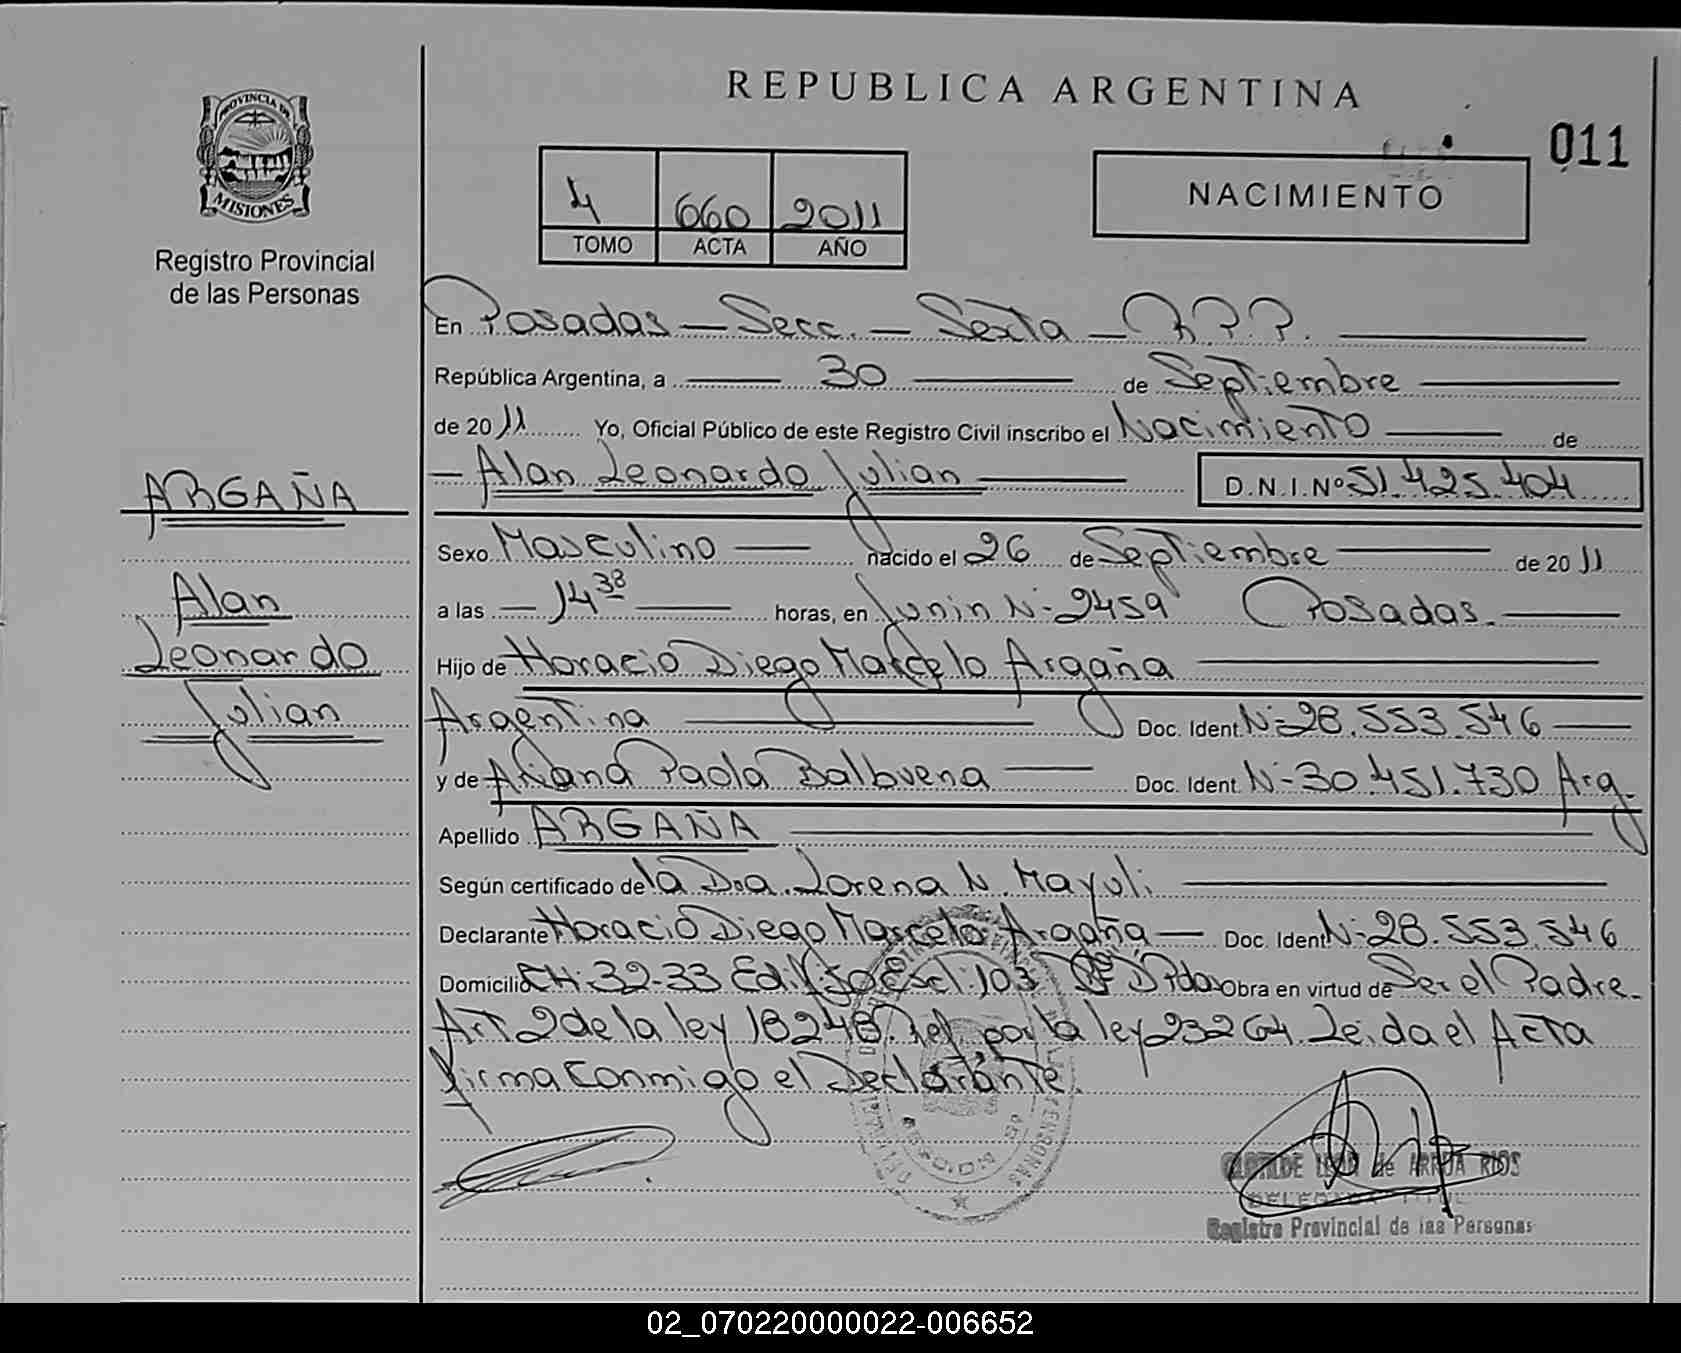 REPUBLICA ARGENTINA
011
PROVINCIA DE
MISIONES
Registro Provincial
de las Personas
4 660 2011
TOMO ACTA AÑO
NACIMIENTO
En Posadas — Secc. — Sexta — R.P.P.
República Argentina, a 30 de Septiembre
de 2011 Yo, Oficial Público de este Registro Civil inscribo el Nacimiento de
Alan Leonardo Julian D.N.I.Nº 51.425.404
ARGAÑA
Alan
Leonardo
Julian
Sexo Masculino nacido el 26 de Septiembre de 2011
a las 14 38 horas, en Junin N- 2459 Posadas.
Hijo de Horacio Diego Marcelo Argaña
Argentina Doc. Ident. N- 28.553.546
y de Ariana Paola Balbuena Doc. Ident. N- 30.451.730 Arg.
Apellido ARGAÑA
Según certificado de la Dra. Lorena N. Mayuli.
Declarante Horacio Diego Marcelo Argaña Doc. Ident. N- 28.553.546
Domicilio CH: 32-33 Edif 50 Escl: 103 Pdas Obra en virtud de Ser el Padre.
Art 2 de la ley 18248. Ref. por la ley 23264. Leida el Acta
firma Conmigo el Declarante.
de ARRUA RIOS
Registro Provincial de las Personas
02_070220000022-006652